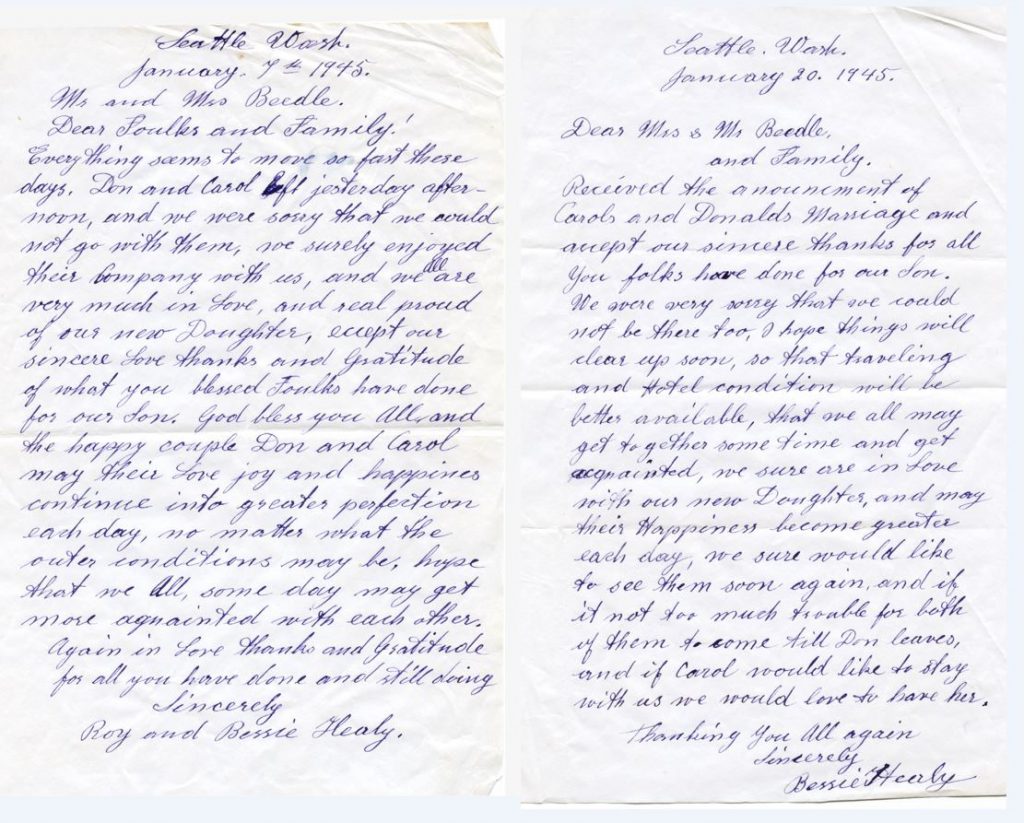 Seattle Wash.
January. 7th 1945.
Mr and Mrs Beedle.
Dear Foulks and Family!
Everything seems to move so fast these
days. Don and Carol left jesterday after-
noon, and we were sorry that we could
not go with them, we surely enjoyed
their Company with us, and we all are
very much in Love, and real proud
of our new Doughter, ecept our
sincere Love thanks and Gratitude
of what you blessed Foulks have done
for our Son. God bless you All, and
the happy couple Don and Carol
may their Love joy and happines
continue into greater perfection
each day, no matter what the
outer conditions may be, hope
that we All, some day may get
more aquainted with each other.
Again in Love thanks and Gratitude
for all you have done and still doing
Sincerely
Roy and Bessie Healy.
Seattle. Wash.
January 20. 1945.
Dear Mrs & Mr Beedle,
and Family.
Received the anouncment of
Carols and Donalds Marriage and
accept our sincere thanks for all
You folks have done for our Son.
We were very sorry that we could
not be there too, I hope things will
clear up soon, so that traveling
and Hotel condition will be
better available, that we all may
get to gether some time and get
acquainted, we sure are in Love
with our new Doughter, and may
their Happiness become greater
each day, we sure would like
to see them soon again, and if
it not too much trouble for both
of them to come till Don leaves,
and if Carol would like to stay
with us we would love to have her.
Thanking You All again
Sincerely
Bessie Healy